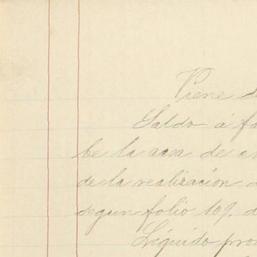 Viene d
Saldo á fa
be la casa de a
de la realizacion
segun folio 109. d
Líquido pro